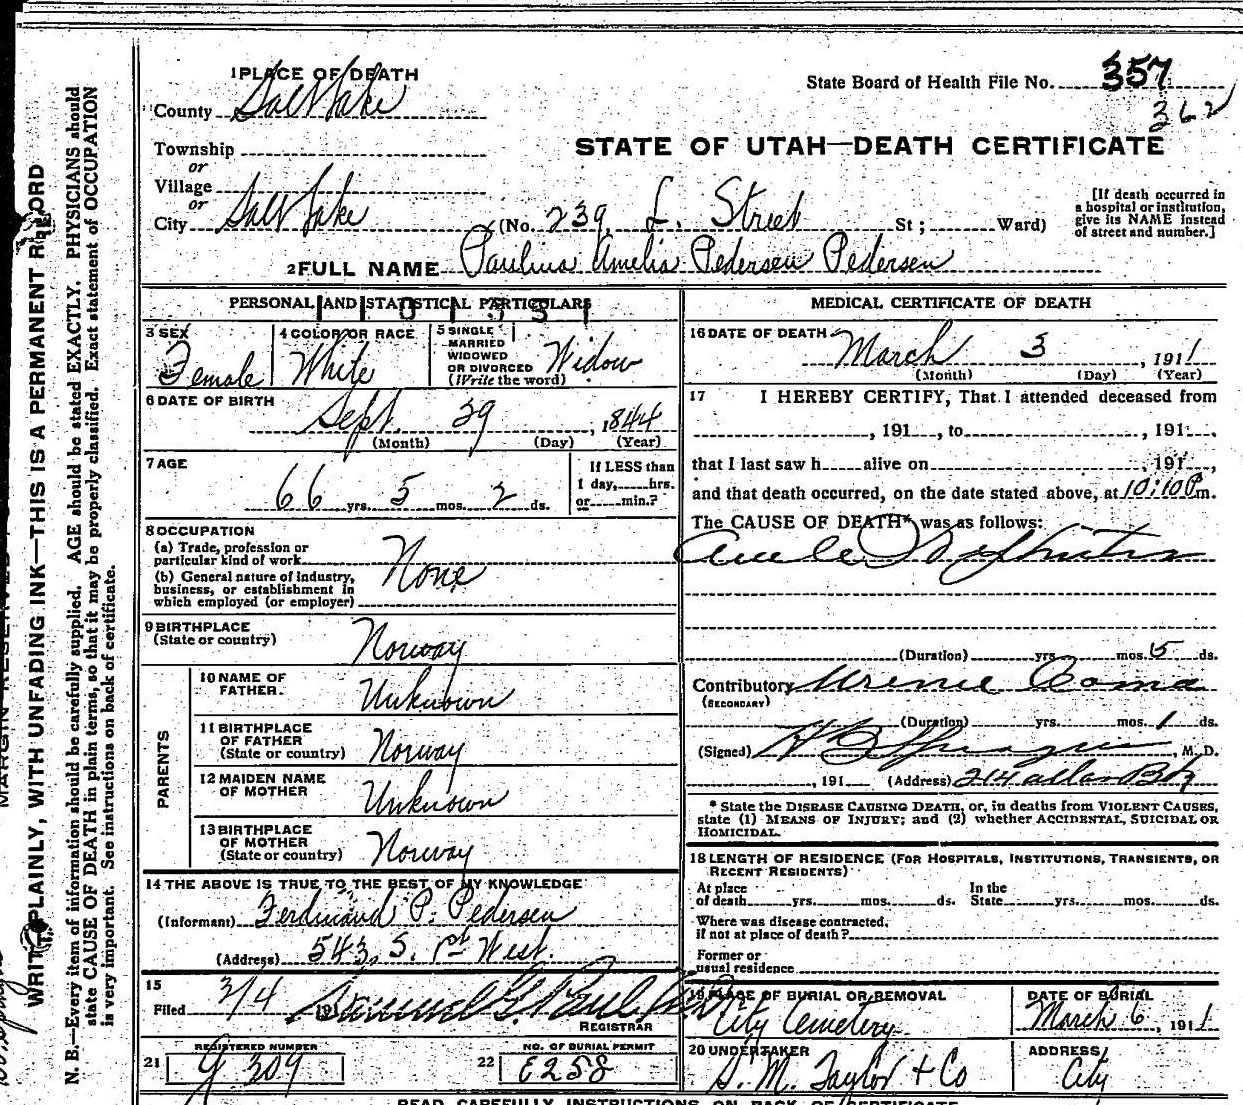 1 PLACE OF DEATH
County Salt Lake
Township
or
Village
or
City Salt Lake (No. 239 L. Street St ; Ward)
State Board of Health File No. 357
362
STATE OF UTAH—DEATH CERTIFICATE
[If death occurred in
a hospital or institution,
give its NAME instead
of street and number.]
2 FULL NAME Paulina Amelia Pedersen Pedersen
PERSONAL AND STATISTICAL PARTICULARS
3 SEX Female
4 COLOR OR RACE White
5 SINGLE
MARRIED
WIDOWED
OR DIVORCED
(Write the word)
Widow
6 DATE OF BIRTH
Sept. 29, 1844
(Month) (Day) (Year)
7 AGE
66 yrs. 5 mos. 2 ds.
If LESS than
1 day, hrs.
or min.?
8 OCCUPATION
(a) Trade, profession or
particular kind of work
(b) General nature of industry,
business, or establishment in
which employed (or employer)
None
9 BIRTHPLACE
(State or country)
Norway
PARENTS
10 NAME OF
FATHER.
Unknown
11 BIRTHPLACE
OF FATHER
(State or country)
Norway
12 MAIDEN NAME
OF MOTHER
Unknown
13 BIRTHPLACE
OF MOTHER
(State or country)
Norway
14 THE ABOVE IS TRUE TO THE BEST OF MY KNOWLEDGE
(Informant) Ferdinand P. Pedersen
(Address) 543 S. 1st West.
15
Filed 3/4 191
REGISTRAR
21 REGISTERED NUMBER
309
22 NO. OF BURIAL PERMIT
E258
MEDICAL CERTIFICATE OF DEATH
16 DATE OF DEATH
March 3, 1911
(Month) (Day) (Year)
17 I HEREBY CERTIFY, That I attended deceased from
, 191 , to , 191 ,
that I last saw h alive on , 191 ,
and that death occurred, on the date stated above, at 10:10 P m.
The CAUSE OF DEATH* was as follows:
Acute Nephritis
(Duration) yrs. mos. 5 ds.
Contributory Uremic Coma
(SECONDARY)
(Duration) yrs. mos. 1 ds.
(Signed) , M. D.
, 191 (Address) 214
* State the DISEASE CAUSING DEATH, or, in deaths from VIOLENT CAUSES,
state (1) MEANS OF INJURY; and (2) whether ACCIDENTAL, SUICIDAL OR
HOMICIDAL.
18 LENGTH OF RESIDENCE (FOR HOSPITALS, INSTITUTIONS, TRANSIENTS, OR
RECENT RESIDENTS)
At place
of death yrs. mos. ds.
In the
State yrs. mos. ds.
Where was disease contracted,
if not at place of death?
Former or
usual residence
19 PLACE OF BURIAL OR REMOVAL
City Cemetery
DATE OF BURIAL
March 6, 1911
20 UNDERTAKER
S. M. Taylor + Co
ADDRESS
City
READ CAREFULLY INSTRUCTIONS ON BACK OF CERTIFICATE
WRITE PLAINLY, WITH UNFADING INK—THIS IS A PERMANENT RECORD
N. B.—Every item of information should be carefully supplied. AGE should be stated EXACTLY. PHYSICIANS should
state CAUSE OF DEATH in plain terms, so that it may be properly classified. Exact statement of OCCUPATION
is very important. See instructions on back of certificate.